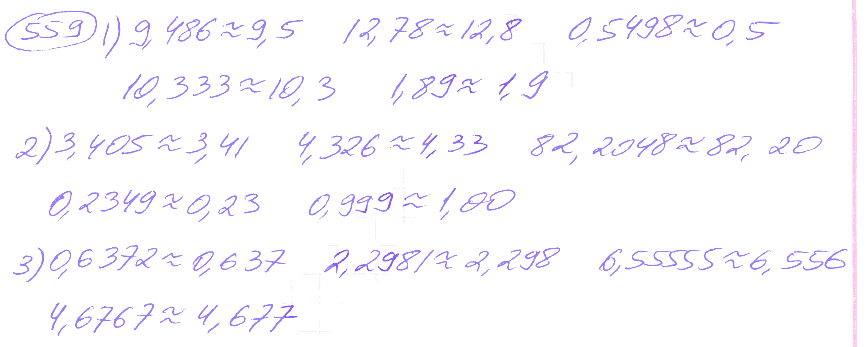 559 1) 9,486≈9,5 12,78≈12,8 0,5498≈0,5
10,333≈10,3 1,89≈1,9
2) 3,405≈3,41 4,326≈4,33 82,2048≈82,20
0,2349≈0,23 0,999≈1,00
3) 0,6372≈0,637 2,2981≈2,298 6,55555≈6,556
4,6767≈4,677